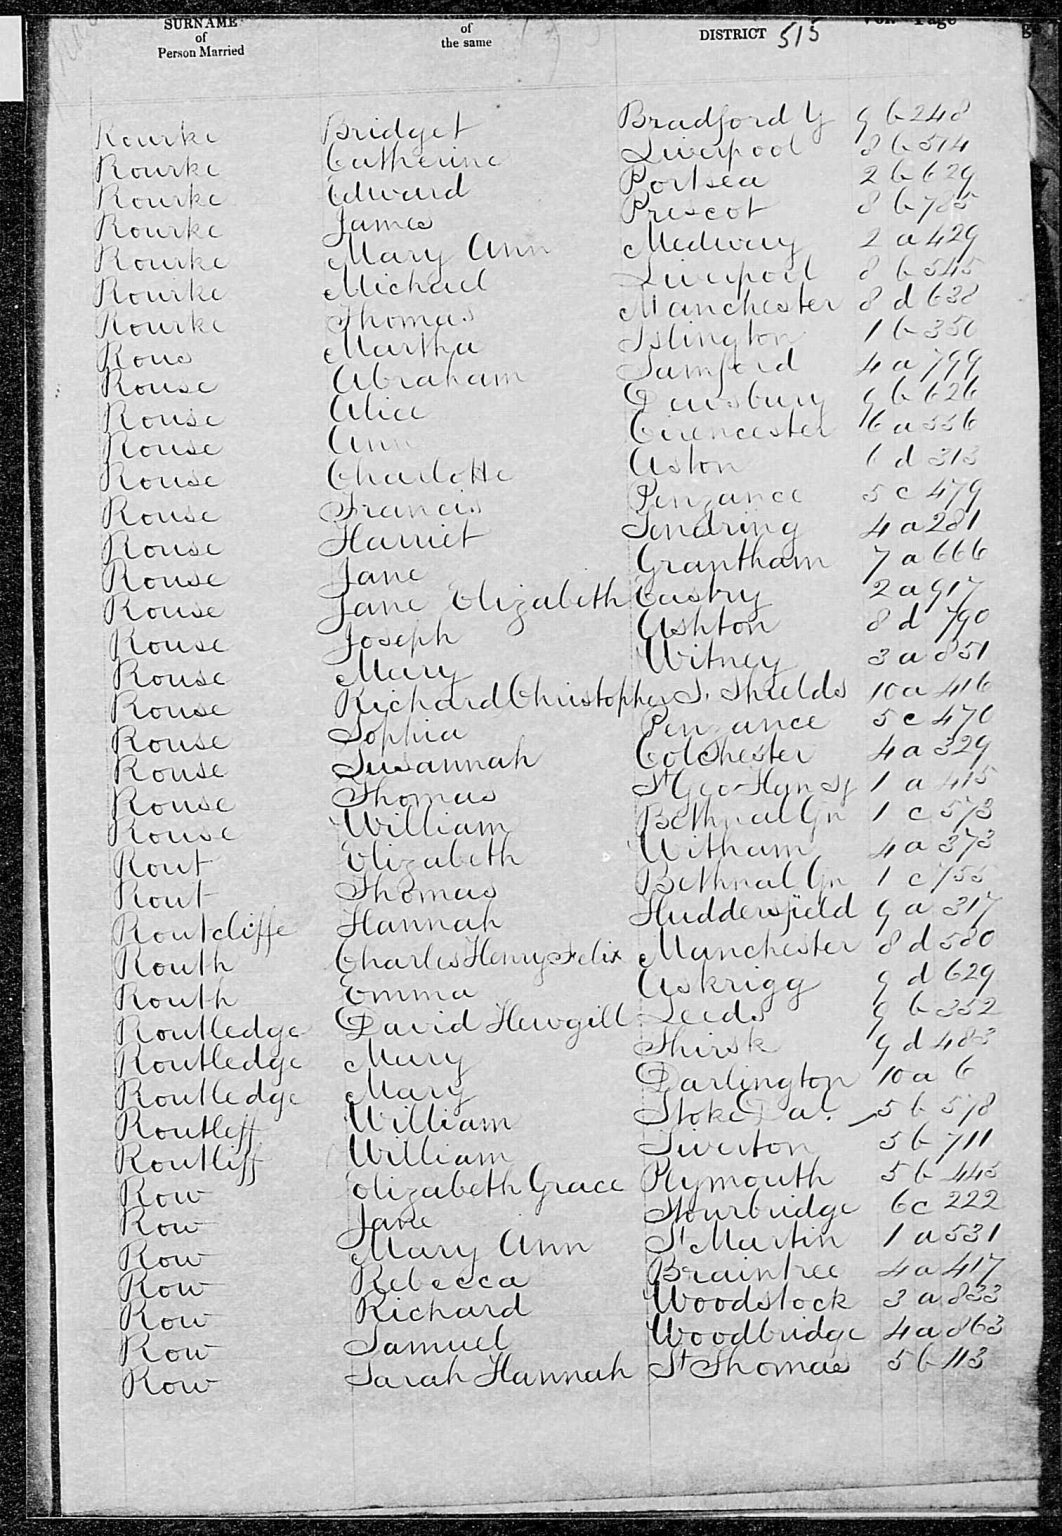 SURNAME of the same DISTRICT 515 Vol. Page
of
Person Married
Rourke Bridget Bradford Y 9 b 248
Rourke Catherine Liverpool 8 b 514
Rourke Edward Portsea 2 b 629
Rourke James Prescot 8 b 785
Rourke Mary Ann Medway 2 a 429
Rourke Michael Liverpool 8 b 545
Rourke Thomas Manchester 8 d 638
Rous Martha Islington 1 b 350
Rouse Abraham Samford 4 a 799
Rouse Alice Dewsbury 9 b 626
Rouse Ann Cirencester 6 a 556
Rouse Charlotte Aston 6 d 313
Rouse Francis Penzance 5 c 479
Rouse Harriet Tendring 4 a 281
Rouse Jane Grantham 7 a 666
Rouse Jane Elizabeth Eastry 2 a 917
Rouse Joseph Ashton 8 d 790
Rouse Mary Witney 3 a 851
Rouse Richard Christopher S. Shields 10 a 416
Rouse Sophia Penzance 5 c 470
Rouse Susannah Colchester 4 a 329
Rouse Thomas St Geo Han Sq 1 a 415
Rouse William Bethnal Gn 1 c 573
Rout Elizabeth Witham 4 a 373
Rout Thomas Bethnal Gn 1 c 755
Routcliffe Hannah Huddersfield 9 a 317
Routh Charles Henry Felix Manchester 8 d 580
Routh Emma Askrigg 9 d 629
Routledge David Hewgill Leeds 9 b 352
Routledge Mary Thirsk 9 d 483
Routledge Mary Darlington 10 a 6
Routleff William Stoke Da. 5 b 578
Routliff William Tiverton 5 b 711
Row Elizabeth Grace Plymouth 5 b 445
Row Jane Stourbridge 6 c 222
Row Mary Ann St Martin 1 a 531
Row Rebecca Braintree 4 a 417
Row Richard Woodstock 3 a 833
Row Samuel Woodbridge 4 a 863
Row Sarah Hannah St Thomas 5 b 113